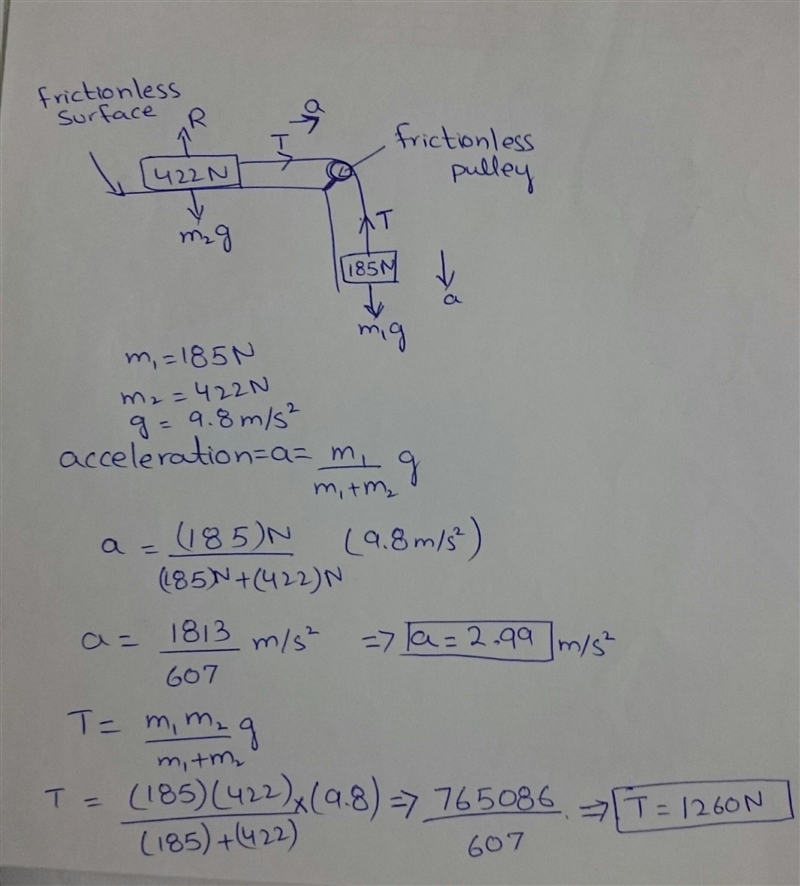 frictionless
surface
R
a
T
frictionless
pulley
422N
m₂g
T
185N
a
m₁g
m₁ = 185N
m₂ = 422N
g = 9.8 m/s²
acceleration = a = m₁ / m₁+m₂ g
a = (185)N / (185)N+(422)N (9.8 m/s²)
a = 1813 / 607 m/s² => a = 2.99 m/s²
T = m₁ m₂ / m₁+m₂ g
T = (185)(422) / (185)+(422) x (9.8) => 765086 / 607 . => T = 1260N